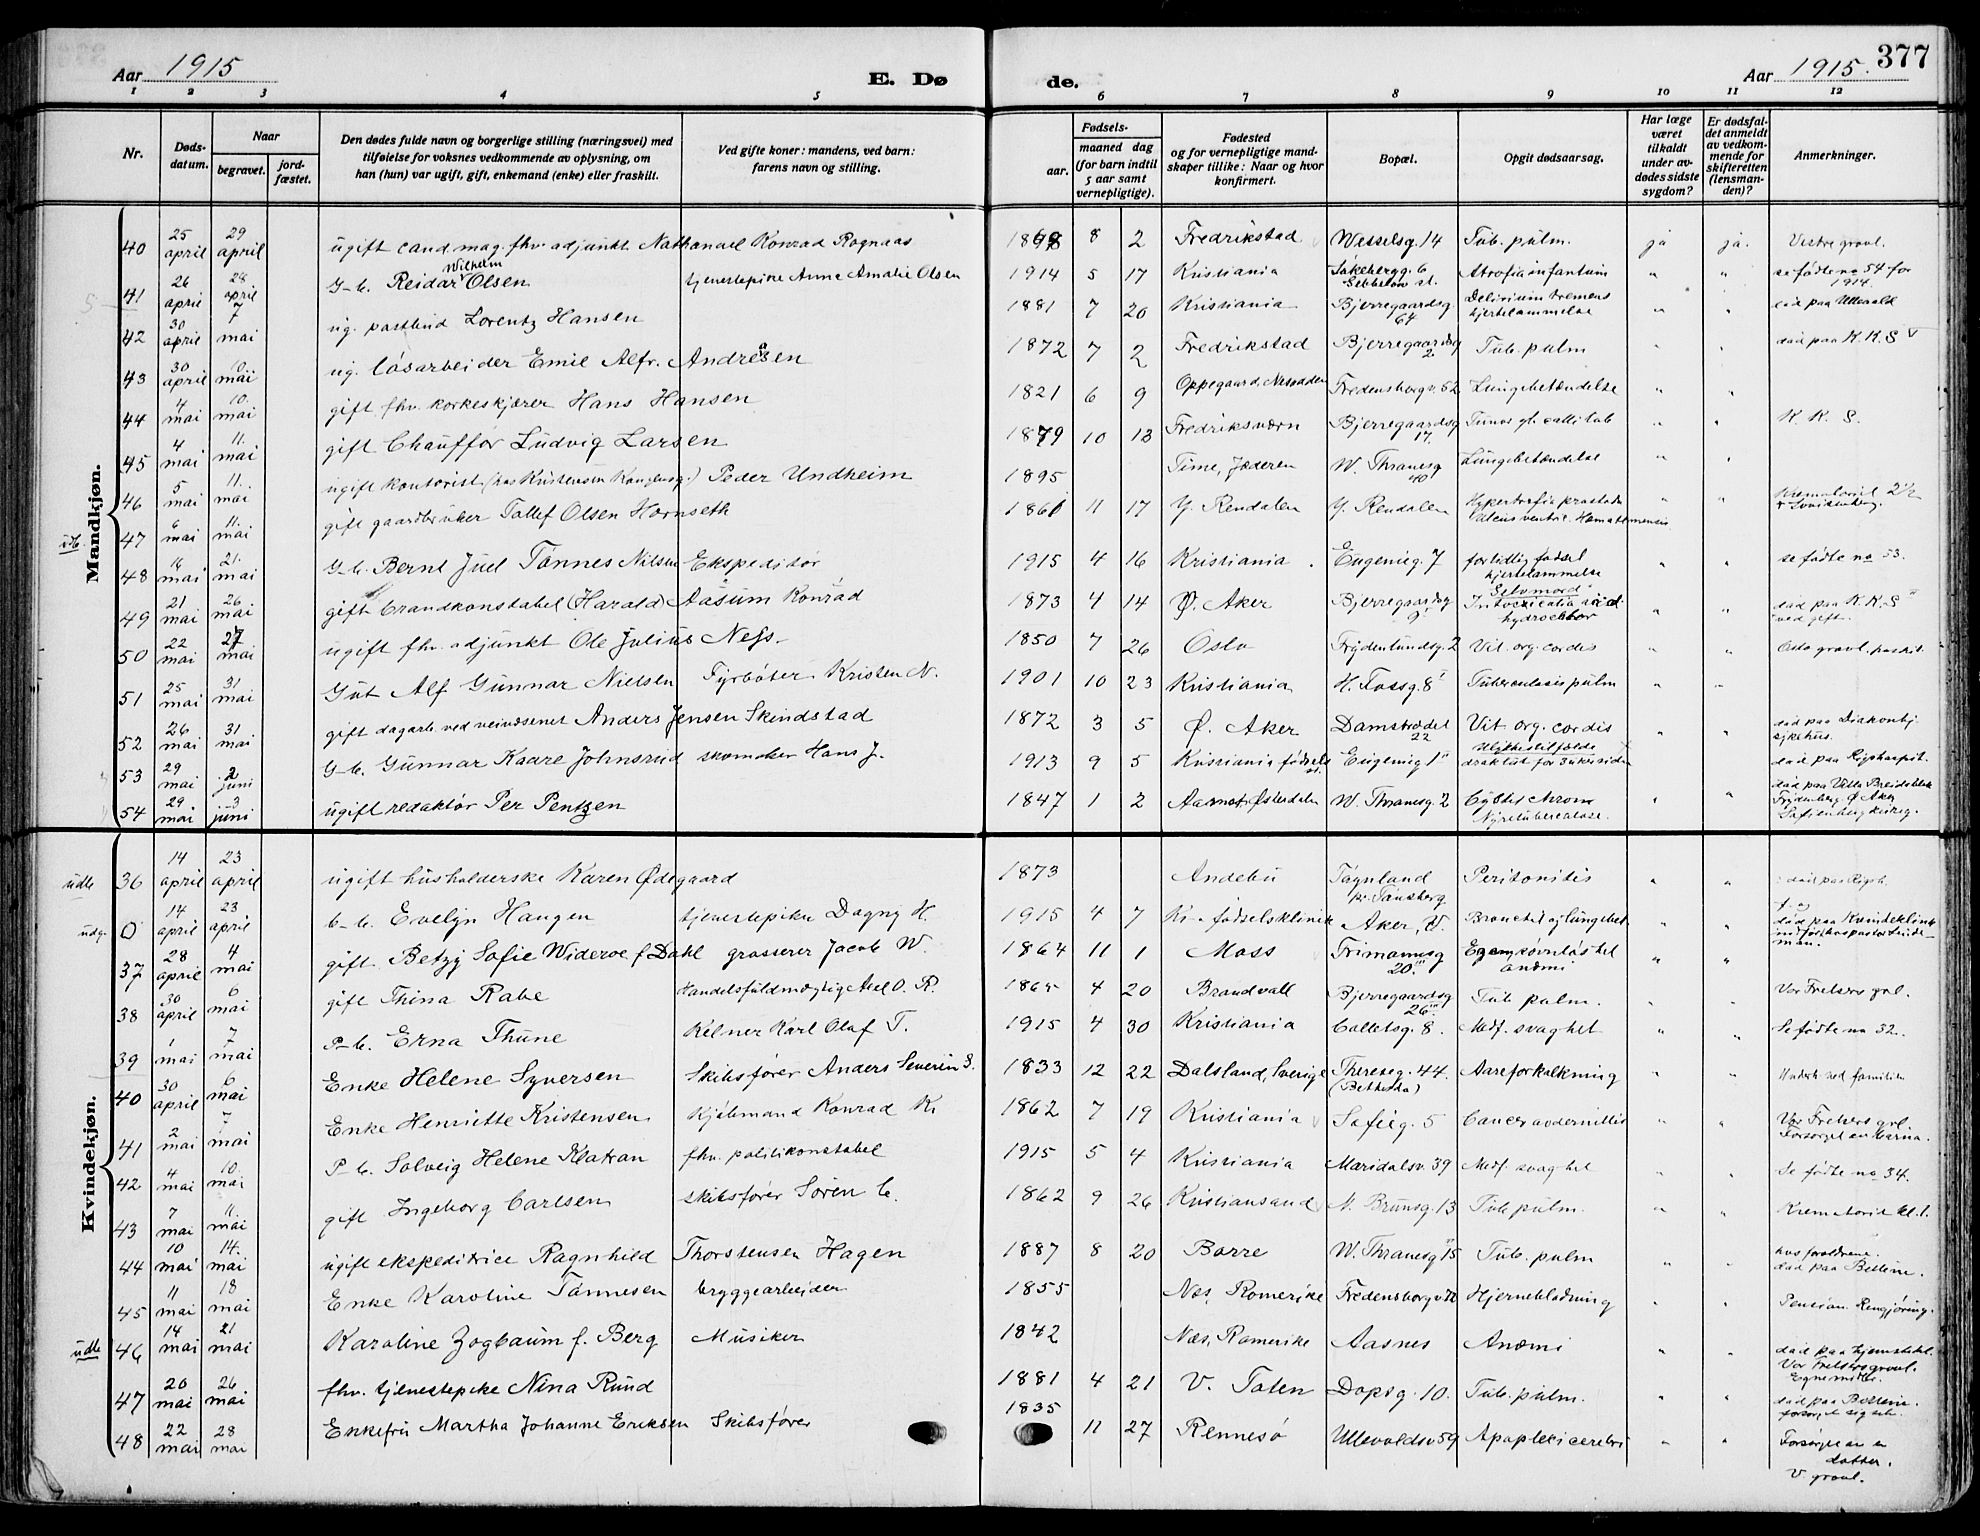 Aar 1915 E. Dø de. Aar 1915. 377
1 2 3 4 5 6 7 8 9 10 11 12
Nr. Døds-datum. Naar begravet. jord-fæstet. Den dødes fulde navn og borgerlige stilling (næringsvei) med tilføielse for voksnes vedkommende av oplysning, om han (hun) var ugift, gift, enkemand (enke) eller fraskilt. Ved gifte koner: mandens, ved barn: farens navn og stilling. Fødsels- aar. maaned dag (for barn indtil 5 aar samt vernepligtige). Fødested og for vernepligtige mand-skaper tillike: Naar og hvor konfirmert. Bopæl. Opgit dødsaarsag. Har læge været tilkaldt under av-dødes sidste sygdom? Er dødsfal-det anmeldt av vedkom-mende for skifteretten (lensman-den)? Anmerkninger.
Mandkjøn.
40 25 april 29 april ugift cand. mag. fhv. adjunkt Nathanael Konrad Rognaas 1868 8 2 Fredrikstad Wesselsg. 14 Tub. pulm. ja ja. Vestre gravl.
41 26 april 28 april G-b. Reidar Wilhelm Olsen tjenestepike Anne Amalie Olsen 1914 5 17 Kristiania Atrofia infantum " " se fødte no 54 for 1914.
42 30 april 7 mai ug. postbud Lorentz Hansen 1881 7 20 Kristiania Bjerregaardsg 64 Delirium tremens hjertelammelse " " død paa Ullevaal
43 30 april mai ug. løsarbeider Emil Alfr. Andresen 1872 7 2 Fredrikstad Bjerregaardsg 2. Tub. pulm " " død paa K. K. S
44 4 mai 10. mai gift fhv. korkeskjærer Hans Hansen 1821 6 9 Oppegaard, Nesodden Fredensborgv. 52 Lungebetændelse " "
45 4 mai 11. mai gift Chauffør Ludvig Larsen 1879 10 13 Fredriksværn Bjerregaardsg 17. " " K. K. S.
46 5 mai 11. mai ugift kontorist Peder Undheim 1895 Time, Jæderen W. Thranesg 40 Lungebetændelse " "
47 6 mai 11. mai gift gaardbruker Tollef Olsen Hornseth 1861 11 17 Y. Rendalen Y. Rendalen Hypertrofia prostata " "
48 16 mai 21. mai G-b. Bernt Juel Tønnes Nilsen Ekspeditør 1915 4 16 Kristiania Eugenieg. 7 for tidlig fødsel hjertelammelse " " se fødte no 53.
49 21 mai 26 mai gift brandkonstabel (Harald) Aasum Konrad 1873 4 14 Ø. Aker Bjerregaardsg 9 Selvmord " " død paa K. K. S ved gift.
50 22 mai 27 mai ugift fhv. adjunkt Ole Julius Ness 1850 7 26 Oslo Frydenlundsg. 2 Vit. org. cordis " "
51 25 mai 31 mai Gut Alf Gunnar Nielsen Fyrbøter Kristen N. 1901 10 23 Kristiania H. Fossg. 8 Tuberculosis pulm " "
52 26 mai 31 mai gift dagarb. ved veivæsenet Anders Jensen Skindstad 1872 3 5 Ø. Aker Damstrædet 22 Vit. org. cordis " " død paa Diakonhj. sykehus.
53 29 mai 2 juni G-b. Gunnar Kaare Johnsrud skomaker Hans J. 1913 9 5 Kristiania fødsels st. Eugenieg 1 Ulykkestilfælde " " død paa Rigshospit.
54 29 mai 3 juni ugift redaktør Per Pentzen 1847 1 2 Aamot Østerdalen W. Thranesg. 2 Cystit chron Nyretuberculose. " "
Kvindekjøn.
udb 36 14 april 23 april ugift husholderske Karen Ødegaard 1873 Andebu Peritonitis " " død paa Rigsh.
udg. 0 14 april 23 april b-b. Evelyn Haugen tjenestepike Dagny H. 1915 4 7 Kr.a fødselsklinik Aker, V. " "
37 28 april 4 mai gift. Betzy Sofie Wideroe f Dahl grosserer Jacob W. 1864 11 1 Moss Frimannsg 20. " "
38 30 april 6 mai gift Thina Rabe Handelsfuldmægtig Axel O. R. 4 20 Brandvall Bjerregaardsg 26 Tub. pulm. " " Vor Frelsers grl.
39 1 mai 7 mai P-b. Erna Thune Kelner Karl Olaf T. 1915 4 30 Kristiania Colletsg. 8. Medf. svaghet " " Se fødte no 32.
40 30 april 6 mai Enke Helene Syversen Skibsfører Anders Severin S. 1833 12 22 Dalsland, Sverige Theresesg. 44. (Bethesda) Aareforkalkning " "
41 2 mai 7 mai Enke Henriette Kristensen Kjøbmand Konrad K. 1862 7 19 Kristiania Sofieg. 5 " " Vor Frelsers grl.
42 4 mai 10. mai P-b. Solveig Helene Klatran fhv. politikonstabel 1915 5 4 Kristiania Maridalsv. 39 Medf. svaghet " " Se fødte no 34.
43 7 mai 11. mai gift Ingeborg Carlsen skibsfører Søren C. 1862 9 26 Kristiansand N. Brunsg. 13 Tub. pulm. " " Krematoriet kl. 1.
44 10 mai 14. mai ugift ekspeditrice Ragnhild Thorstensen Hagen 1887 8 20 Borre W. Thranesg 15 Tub. pulm " " hos forældrene.
45 11 mai 18 mai Enke Karoline Tønnesen bryggearbeider 1855 Nes, Romerike Hjerneblødning " " Pension. Rengjøring.
udb 46 14 mai 21 mai Karoline Zogbaum f. Berg Musiker 1842 Næs, Romerike Aasnes Anæmi " "
47 20 mai 26 mai fhv. tjenestepike Nina Rund 1881 4 21 V. Toten Dopsg. 10. Tub. pulm. " "
48 22 mai 28 mai Enkefru Martha Johanne Eriksen Skibsfører 1835 11 27 Rennesø Ullevoldsv 59 Apoplexi cerebri " " Forsørget av en datter. V. gravl.